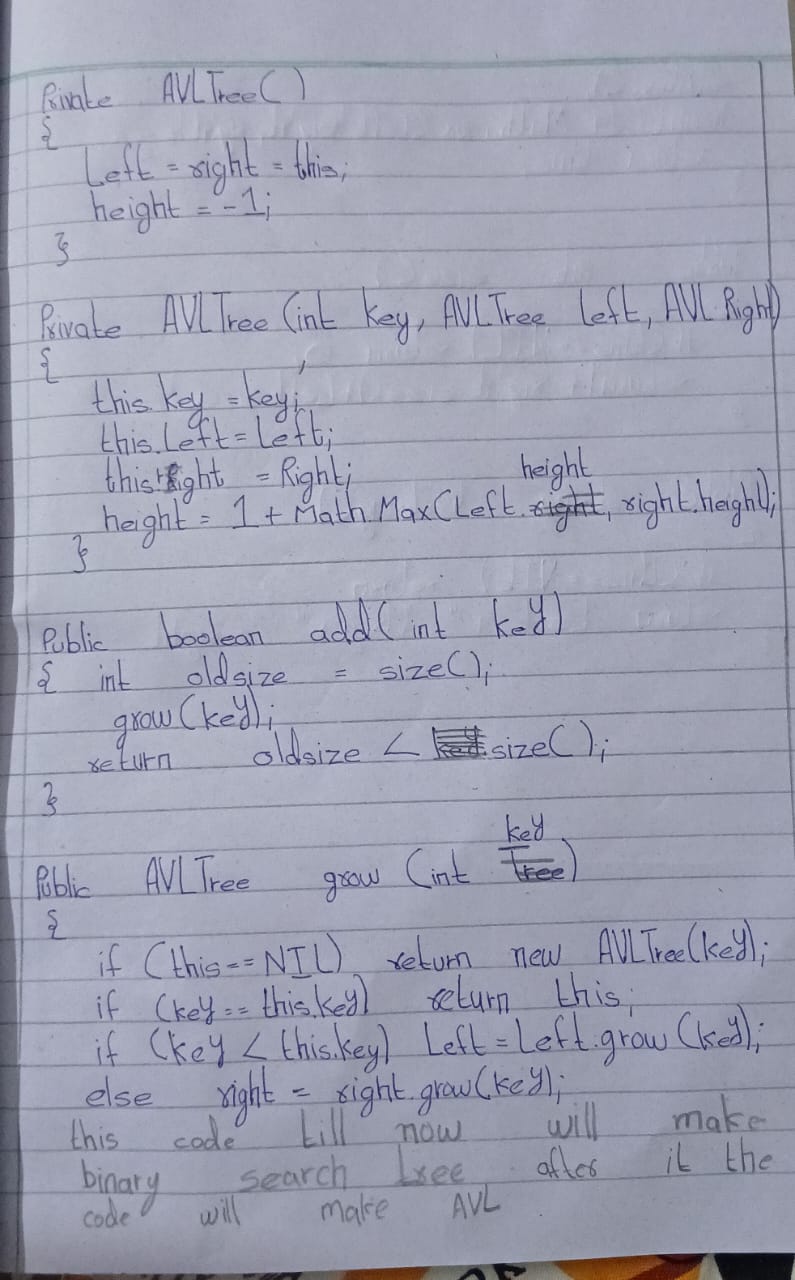 Private AVLTree()
{
Left = right = this;
height = -1;
}
Private AVLTree (int key, AVLTree Left, AVL Right)
{
this.key = key;
this.Left = Left;
this.right = Right;
height
height = 1 + Math.Max(Left.right, right.height);
}
Public boolean add(int key)
{ int oldsize = size();
grow(key);
return oldsize < size();
}
key
Public AVLTree grow (int Tree)
{
if (this == NIL) return new AVLTree(key);
if (key == this.key) return this;
if (key < this.key) Left = Left.grow(key);
else right = right.grow(key);
this code till now will make
binary search tree after it the
code will make AVL